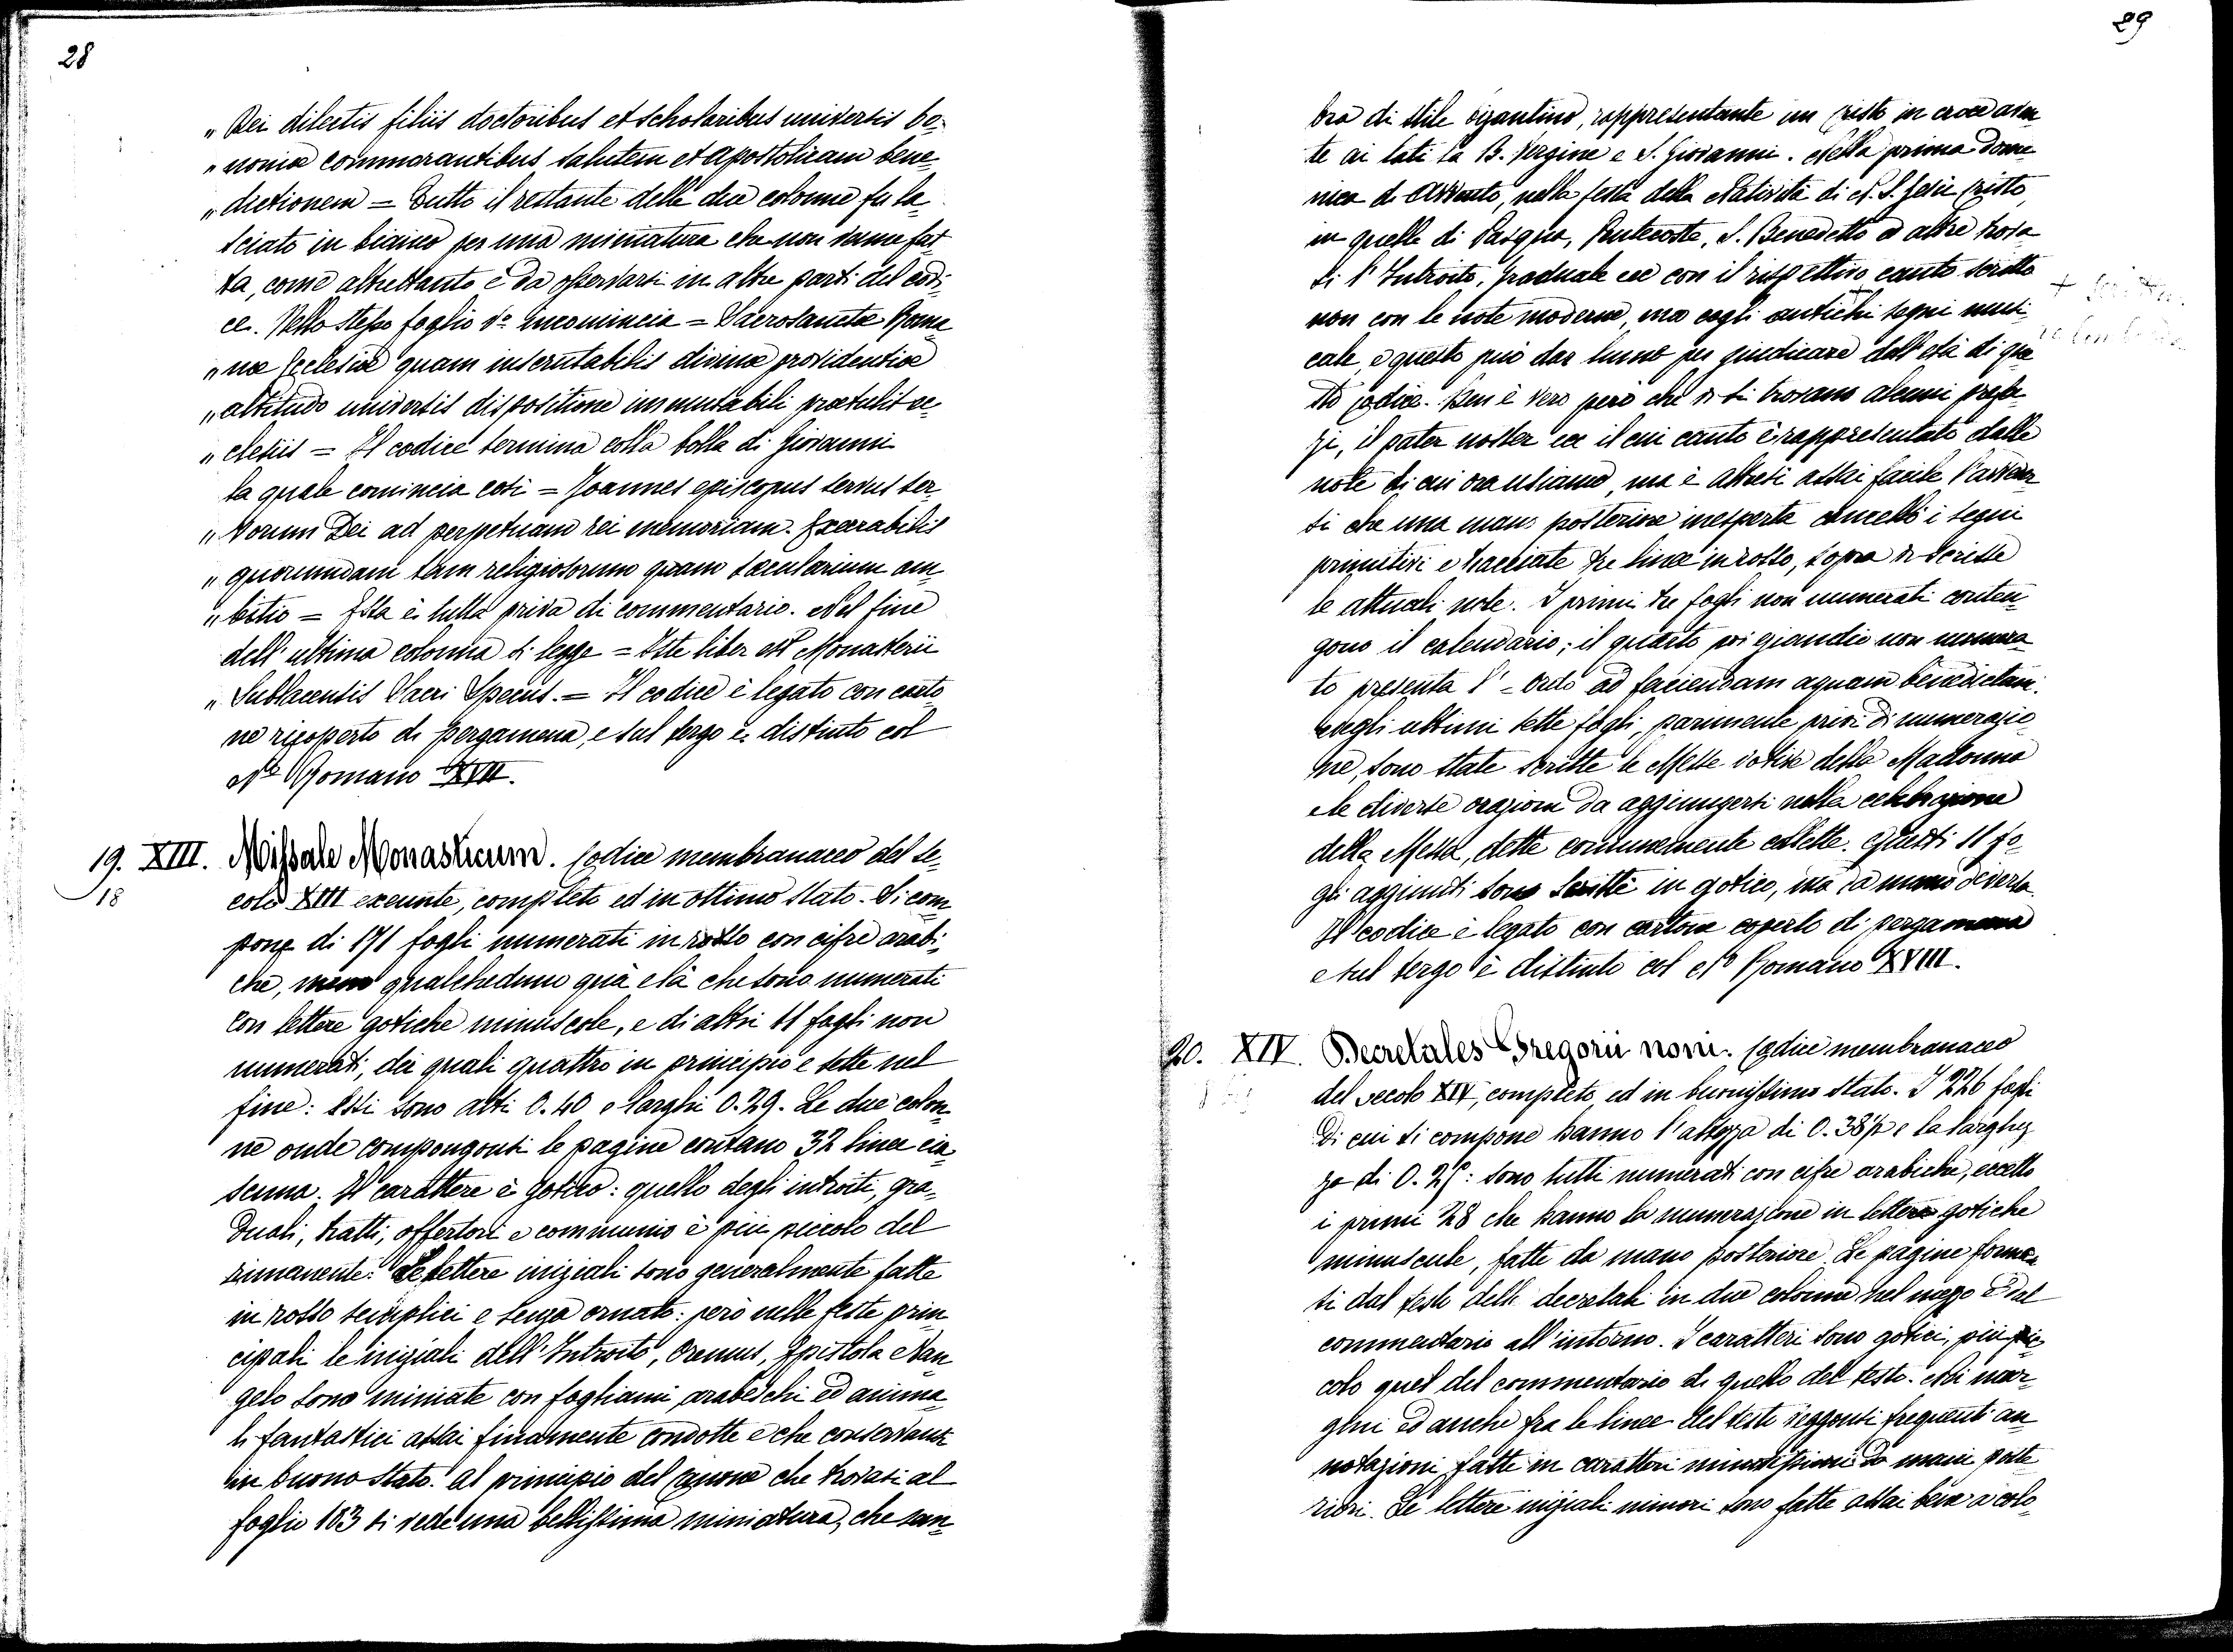 28
„ Dei dilectis filiis doctoribus et scholaribus universis bo-
„ noniæ commorantibus salutem et apostolicam bene-
„ dictionem = Tutto il restante delle due colonne fu la-
sciato in bianco per una miniatura che non venne fat-
ta, come altrettanto è da osservarsi in altre parti del codi-
ce. Nello stesso foglio vo incomincia = Sacrosanctæ Roma-
„ næ Ecclesiæ quam inscrutabilis divinæ providentiæ
„ altitudo universis dispositione immutabili prætulit ec-
„ clesiis = Il codice termina colla bolla di Giovanni
la quale comincia così = Joannes episcopus servus ser-
„ vorum Dei ad perpetuam rei memoriam. Execrabilis
„ quorumdam tam religiosorum quam sæcularium am-
„ bitio = Essa è tutta priva di commentario. Nel fine
dell' ultima colonna si legge = Iste liber est Monasterii
„ Sublacensis Sacri Specus. = Il codice è legato con carto-
ne ricoperto di pergamena, e sul tergo è distinto col
No Romano XVII.
19. XIII. Missale Monasticum. Codice membranaceo del se-
18
colo XIII exeunte, completo ed in ottimo stato. Si com-
pone di 171 fogli numerati in rosso con cifre arabi-
che, meno qualcheduno quà e là che sono numerati
con lettere gotiche minuscole, e di altri 11 fogli non
numerati, dei quali quattro in principio e sette nel
fine: Essi sono alti 0.40 e larghi 0.29. Le due colon-
ne onde compongonsi le pagine contano 32 linee cia-
scuna. Il carattere è gotico: quello degli introiti, gra-
duali, tratti, offertori e communio è più piccolo del
rimanente. Le lettere iniziali sono generalmente fatte
in rosso semplici e senza ornato: però nelle feste prin-
cipali le iniziali dell' Introito, Oremus, Epistola e Van-
gelo sono miniate con fogliami, arabeschi ed anima-
li fantastici assai finamente condotte e che conservansi
in buono stato. Al principio del Canone che trovasi al
foglio 103 si vede una bellissima miniatura, che sem-
29
bra di stile bizantino, rappresentante un Cristo in croce aven-
te ai lati la B. Vergine e S. Giovanni. Nella prima Dome-
nica di Avvento, nella festa della Natività di N. S. Gesù Cristo,
in quelle di Pasqua, Pentecoste, S. Benedetto ed altre trova-
si l' Introito, Graduale ecc con il rispettivo canto scritto
non con le note moderne, ma cogli antichi segni musi-
cali, e questo può dar lume per giudicare dell' età di que-
sto codice. Ben è vero però che vi si trovano alcuni prefa-
zi, il pater noster ecc il cui canto è rappresentato dalle
note di cui ora usiamo, ma è altresì assai facile l' avveder-
si che una mano posteriore inesperta cancellò i segni
primitivi e tracciate tre linee in rosso, sopra vi scrisse
le attuali note. I primi tre fogli non numerati conten-
gono il calendario; il quarto poi eziandio non numera-
to presenta l' = Ordo ad faciendam aquam benedictam.
Negli ultimi sette fogli, parimente privi di numerazio-
ne, sono state scritte le Messe votive della Madonna
e le diverse orazioni da aggiungersi nella celebrazione
della Messa, dette comunemente collette. Questi 11 fo-
gli aggiunti sono scritti in gotico, ma da mano diversa.
Il codice è legato con cartone coperto di pergamena
e sul tergo è distinto col No Romano XVIII.
20. XIV. Decretales Gregorii noni. Codice membranaceo
del secolo XIV, completo, ed in buonissimo stato. I 226 fogli
di cui si compone hanno l' altezza di 0.38½ e la larghez-
za di 0.25: sono tutti numerati con cifre arabiche, eccetto
i primi 28 che hanno la numerazione in lettere gotiche
minuscole, fatte da mano posteriore. Le pagine forman-
si dal testo delle decretali in due colonne nel mezzo e dal
commentario all' intorno. I caratteri sono gotici, più pic-
colo quel del commentario di quello del testo. Nei mar-
gini ed anche fra le linee del testo veggonsi frequenti an-
notazioni, fatte in caratteri minutissimi da mani poste-
riori. Le lettere iniziali minori sono fatte assai bene a colo-